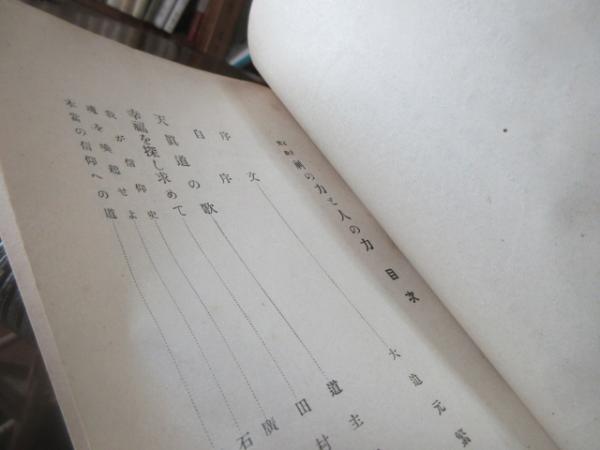 神の力と人の力 目次
序文 大道元繁
自序
天眞道の歌 道主
幸福を探し求めて 田村
我が信仰史 廣
魂を喚起せよ 石
本當の信仰への道